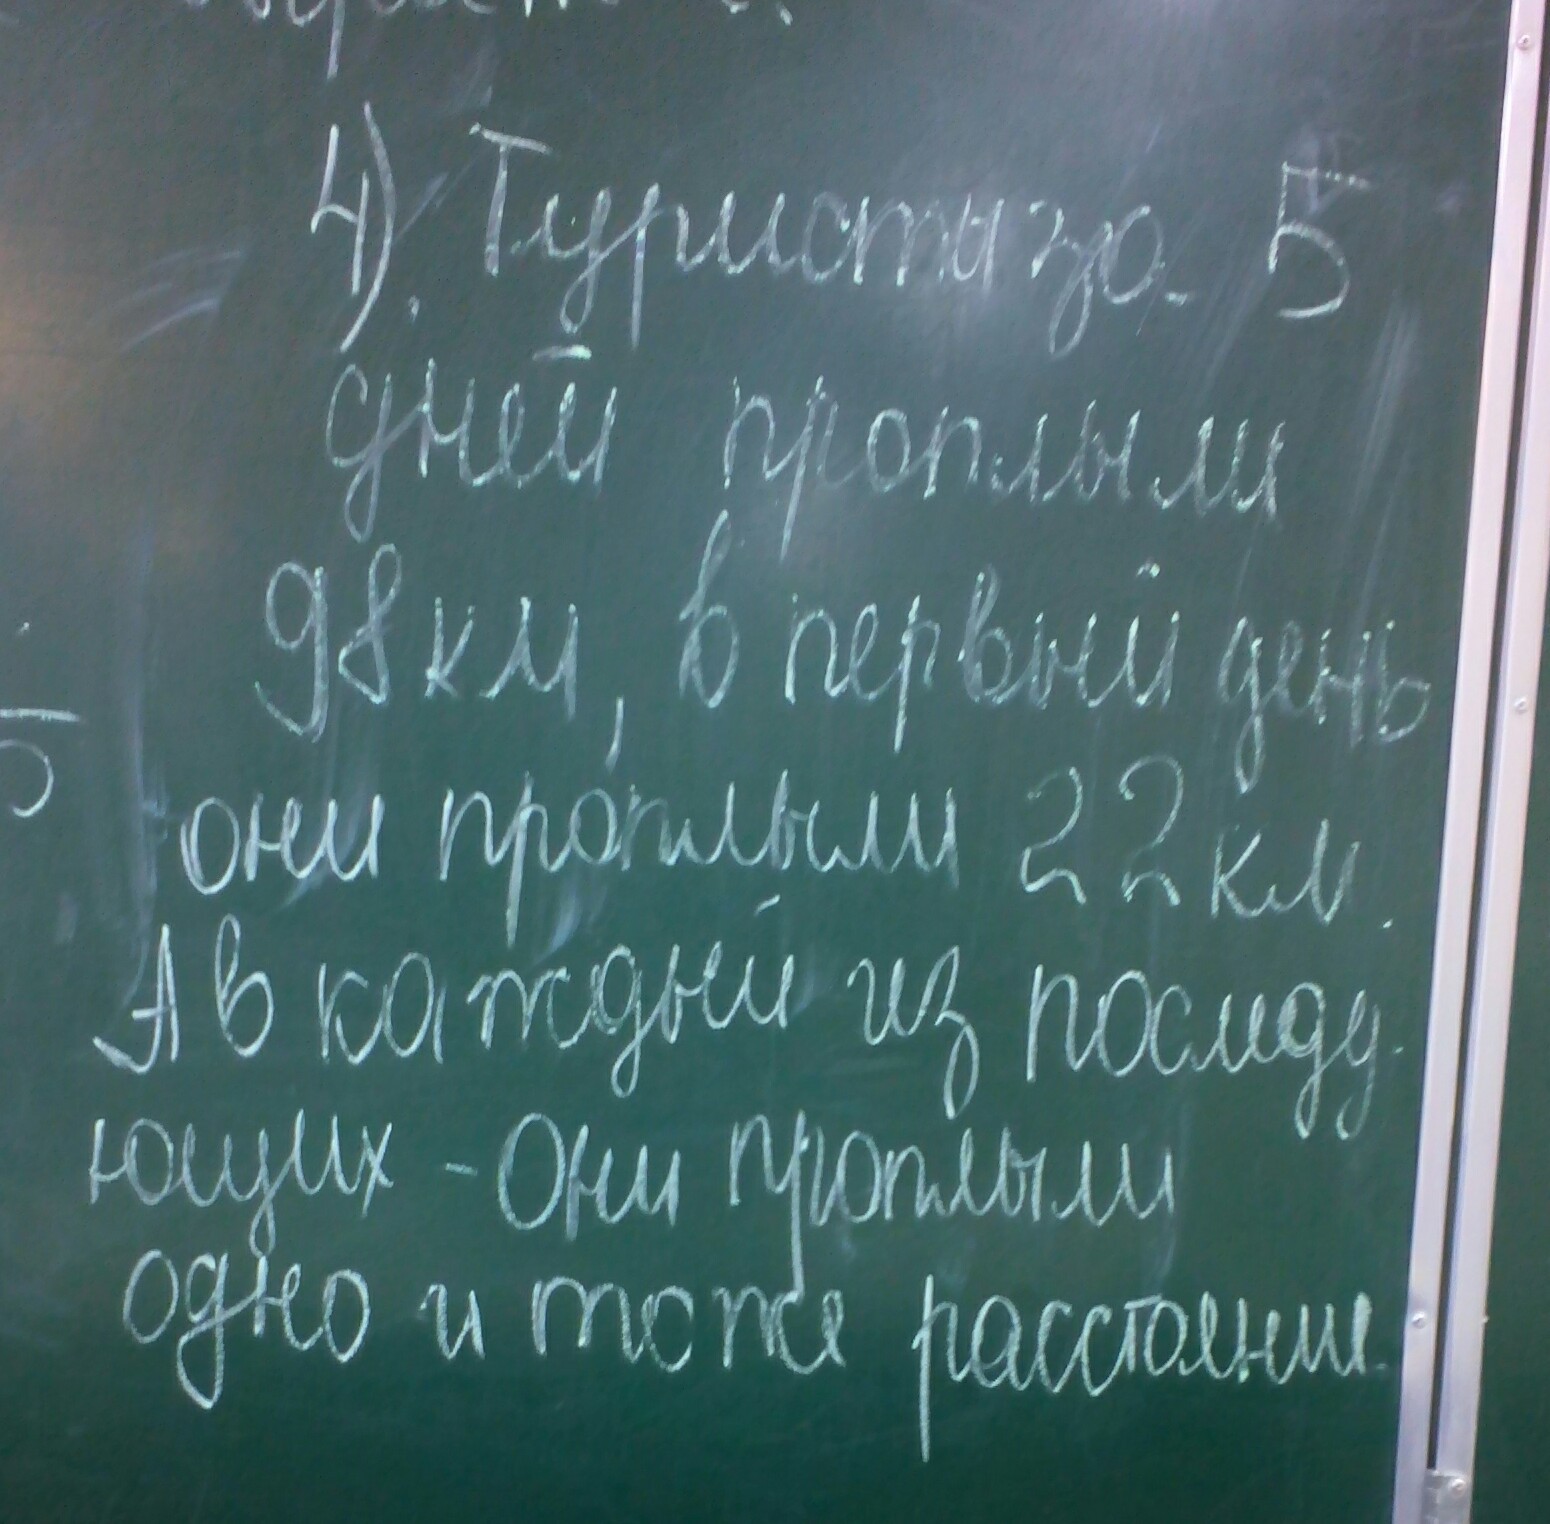 4). Туристы за 5
дней проплыли
98 км, в первый день
они проплыли 22 км.
А в каждый из последу
ющих - они проплыли
одно и тоже расстояние
5